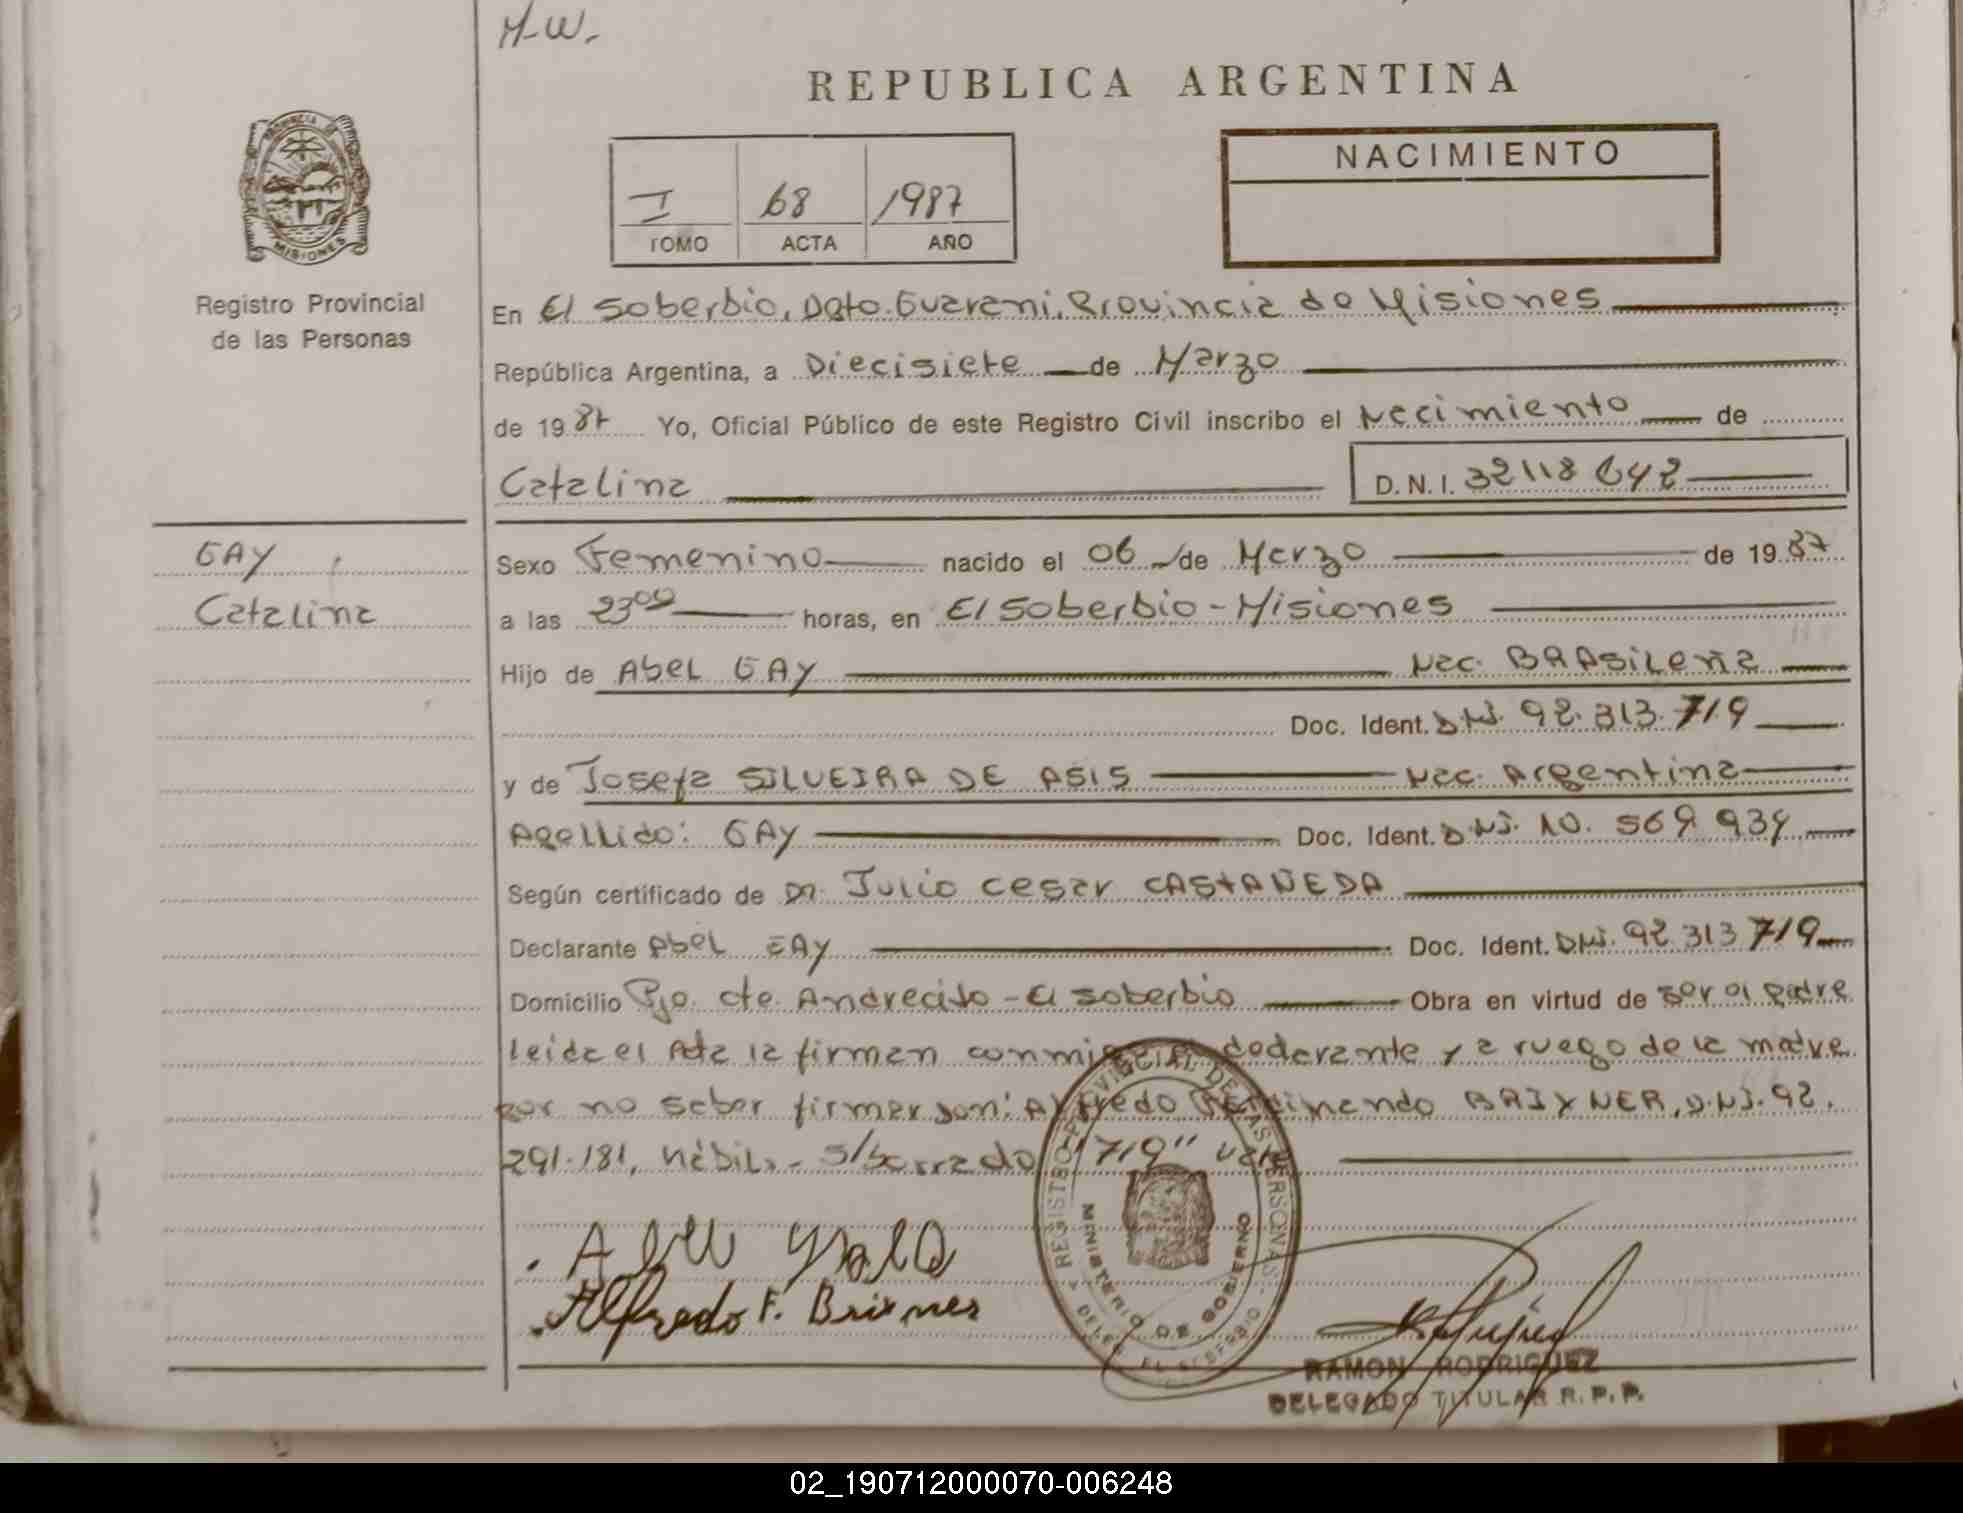 M-W.
REPUBLICA ARGENTINA
PROVINCIA DE
MISIONES
I 68 1987
TOMO ACTA AÑO
NACIMIENTO
Registro Provincial
de las Personas
En El Soberbio, Dpto. Guarani, Provincia de Misiones
República Argentina, a Diecisiete de Marzo
de 19 87 Yo, Oficial Público de este Registro Civil inscribo el Nacimiento de
Catalina D.N.I. 32118642
GAY
Catalina
Sexo Femenino nacido el 06 de Marzo de 19 87
a las 23 00 horas, en El Soberbio - Misiones
Hijo de Abel GAY Nac. BRASileña
Doc. Ident. DNI. 92.313.719
y de Josefa SILVEIRA DE ASIS Nac. Argentina
Apellido: GAY Doc. Ident. DNI. 10.569.934
Según certificado de Dr. Julio Cesar CASTAÑEDA
Declarante Abel GAY Doc. Ident. DNI. 92.313.719
Domicilio Pje. Cte. Andrecito - El Soberbio Obra en virtud de ser el padre
leida el Acta la firman conmigo el declarante y a ruego de la madre
por no saber firmar Don: Alfredo Ferdinando BRIXNER, D.NI. 92.
291.181, Hábil. - S/borrado "719" Vale
REGISTRO PROVINCIAL DE LAS PERSONAS
MINISTERIO DE GOBIERNO
DELEG. EL SOBERBIO
Abel
Alfredo F. Brixner
RAMON RODRIGUEZ
DELEGADO TITULAR R.P.P.
02_190712000070-006248